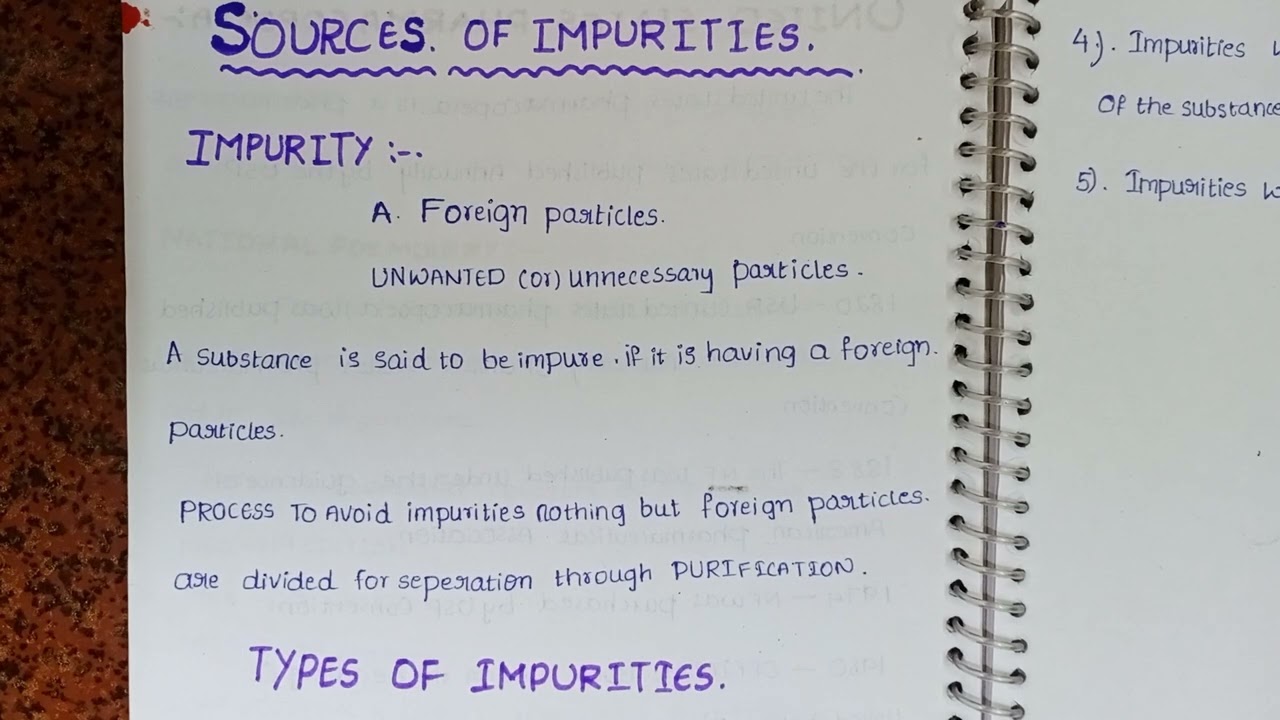 SOURCES. OF IMPURITIES.
IMPURITY :-.
A. Foreign particles.
UNWANTED (or) unnecessary particles.
A substance is said to be impure. if it is having a foreign.
particles.
PROCESS TO AVOID impurities nothing but foreign particles.
are divided for seperation through PURIFICATION.
TYPES OF IMPURITIES.
4). Impurities
Of the substance
5). Impurities